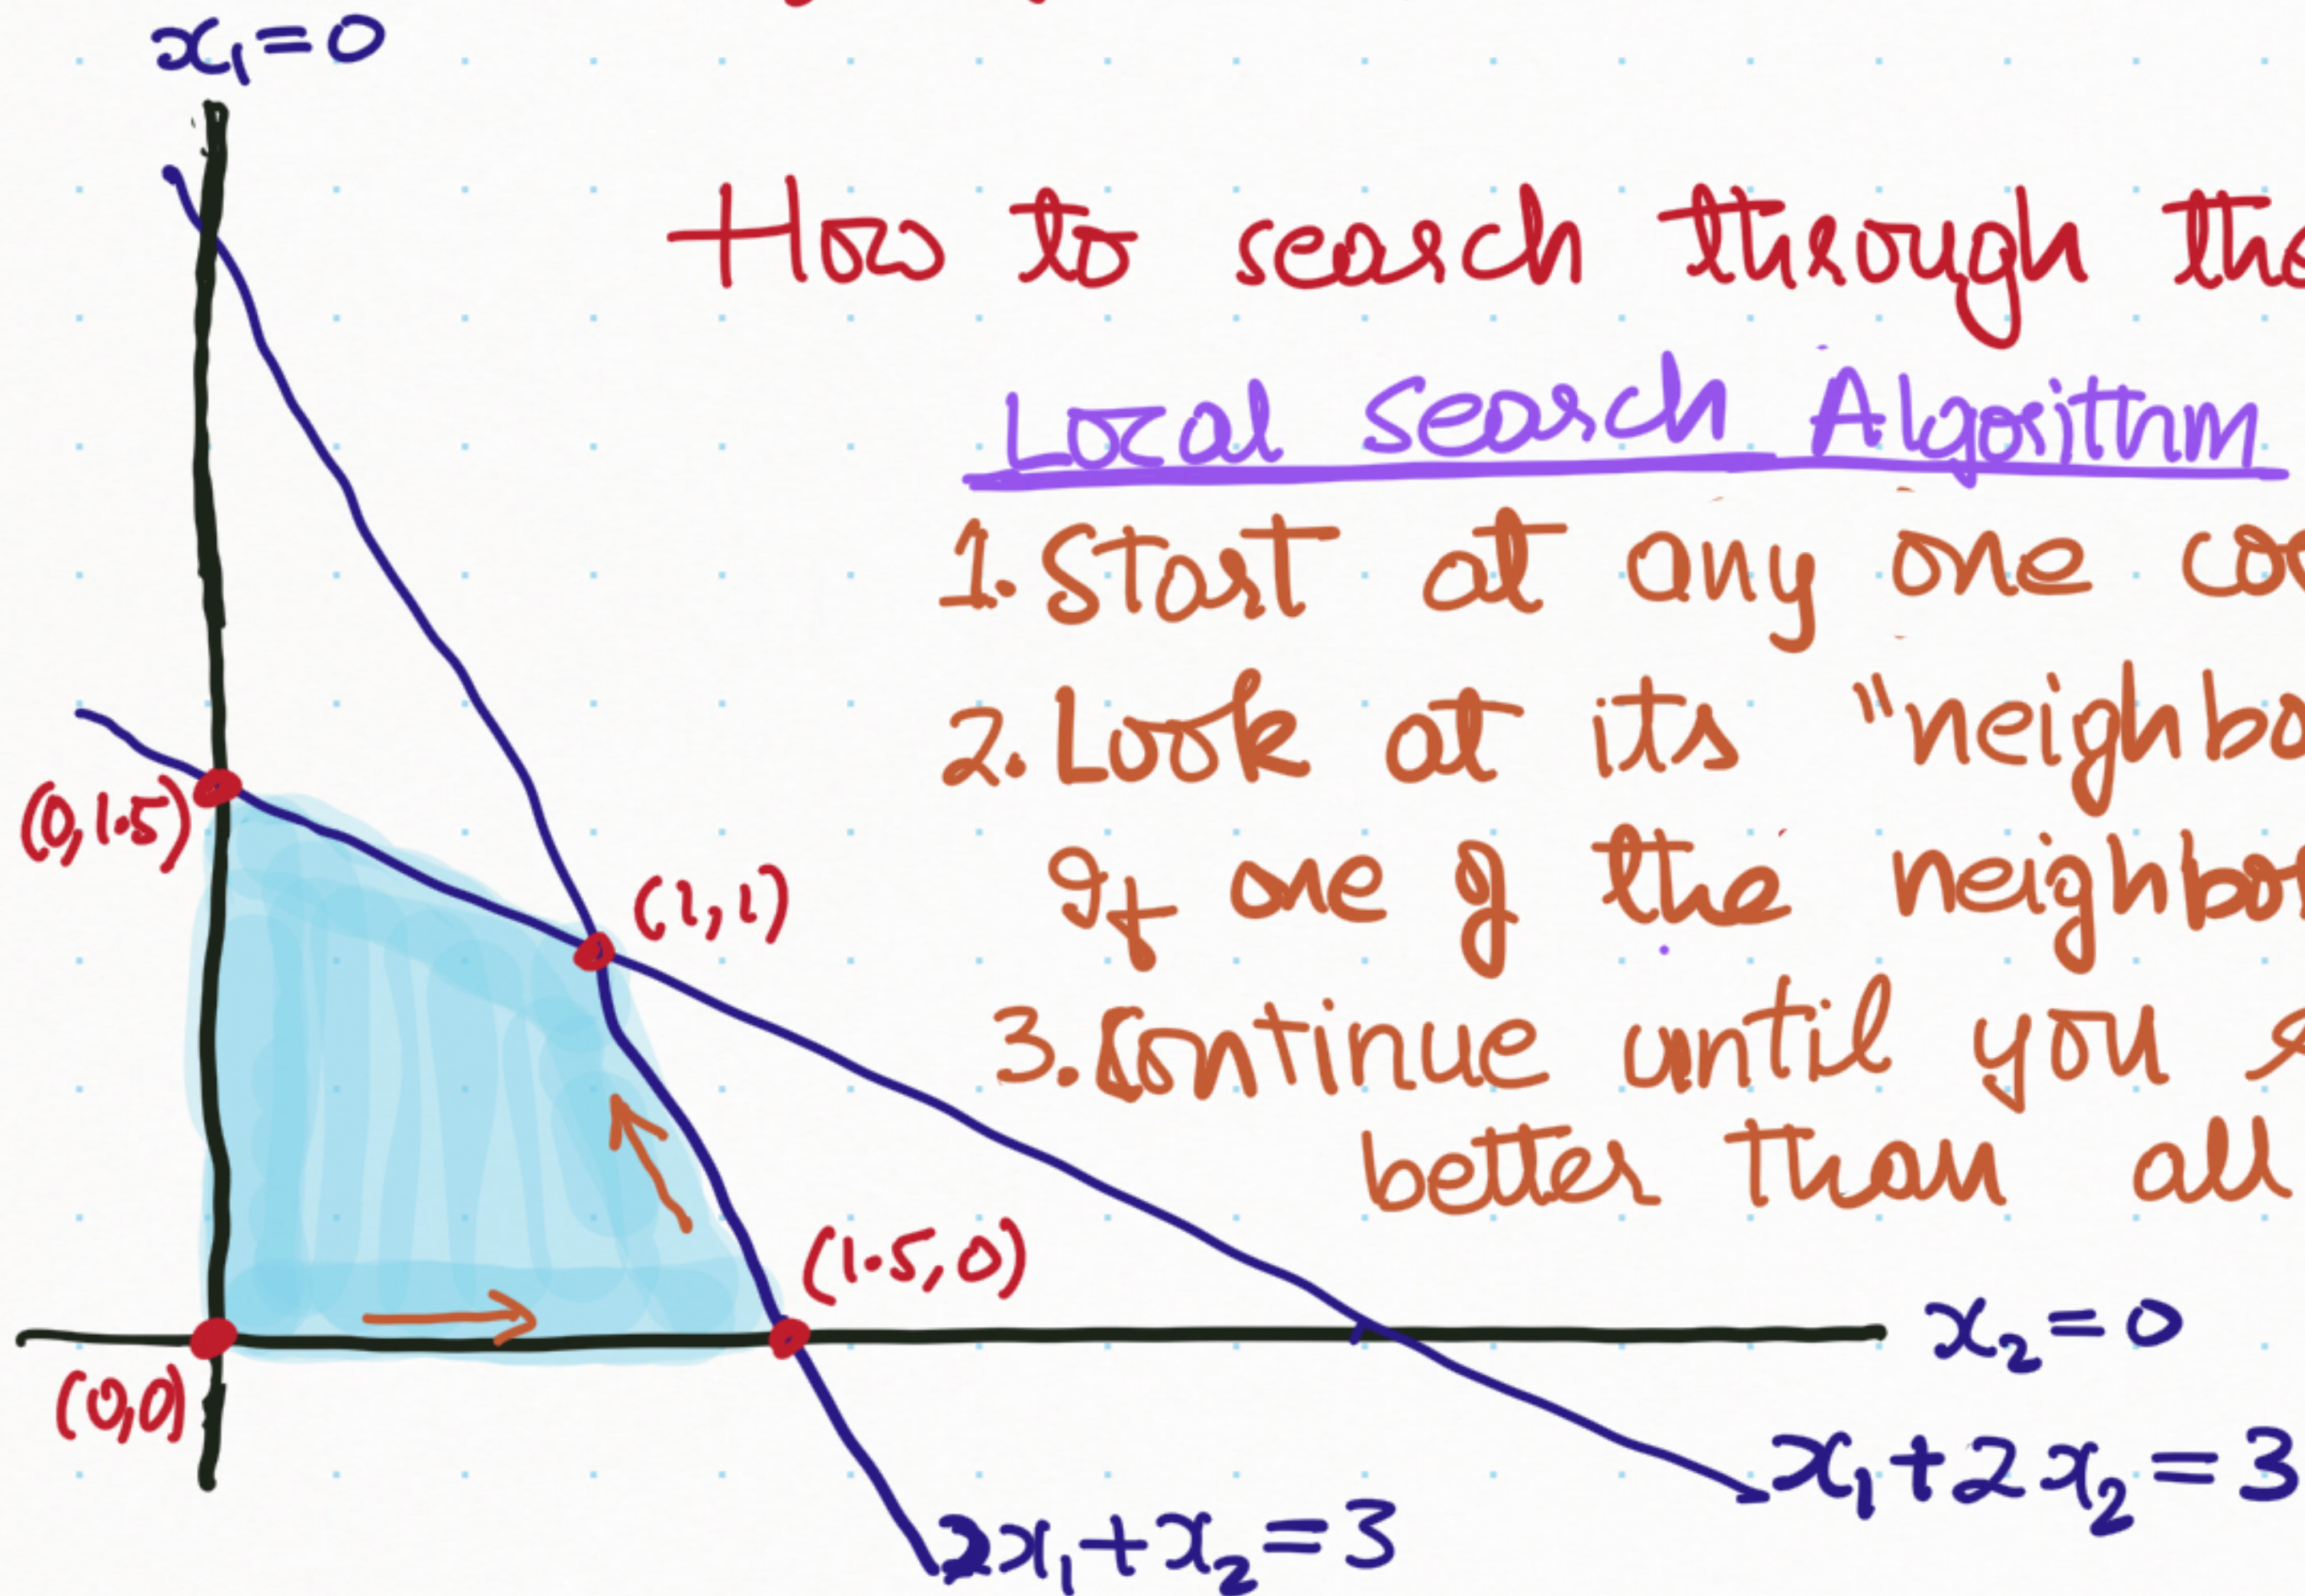 x₁=0
How to search through the
Local search Algorithm
1. Start at any one
2. Look at its "neighbo
(0,1.5)
If one of the neighbor
(1,1)
3. Continue until you
better than all
(1.5,0)
x₂=0
(0,0)
x₁+2x₂=3
2x₁+x₂=3